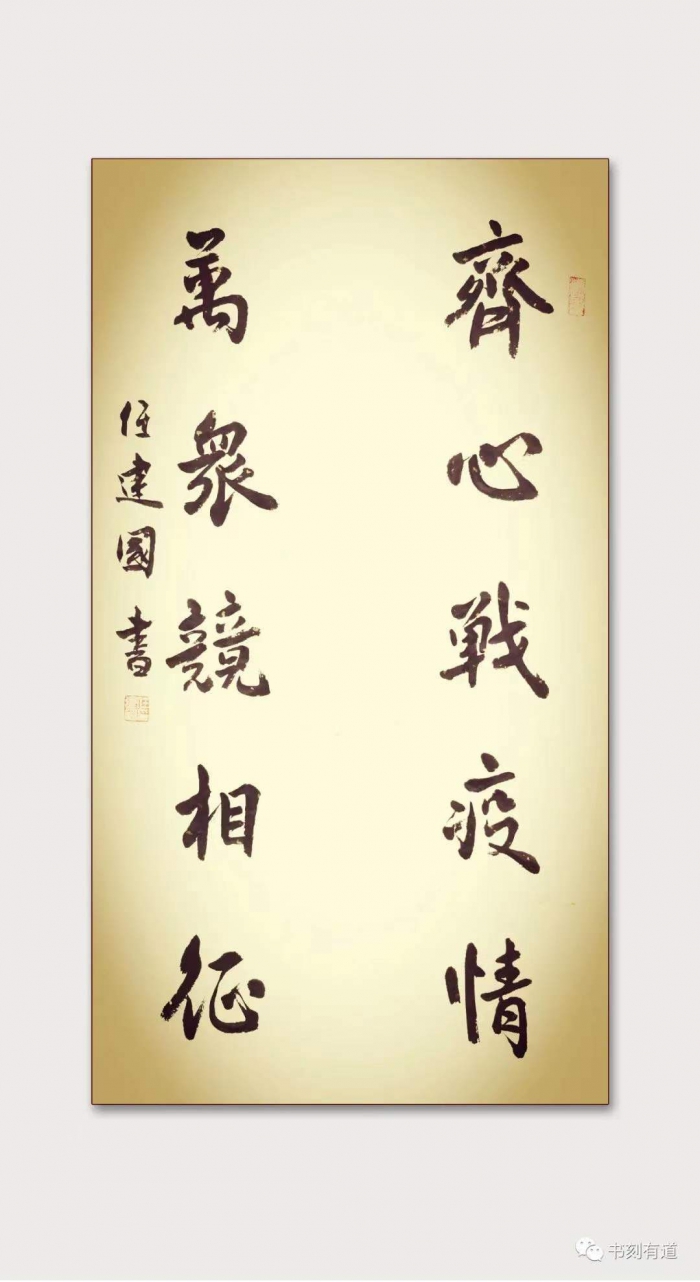 齊心戰疫情
萬衆競相征
任建國書
书刻有道